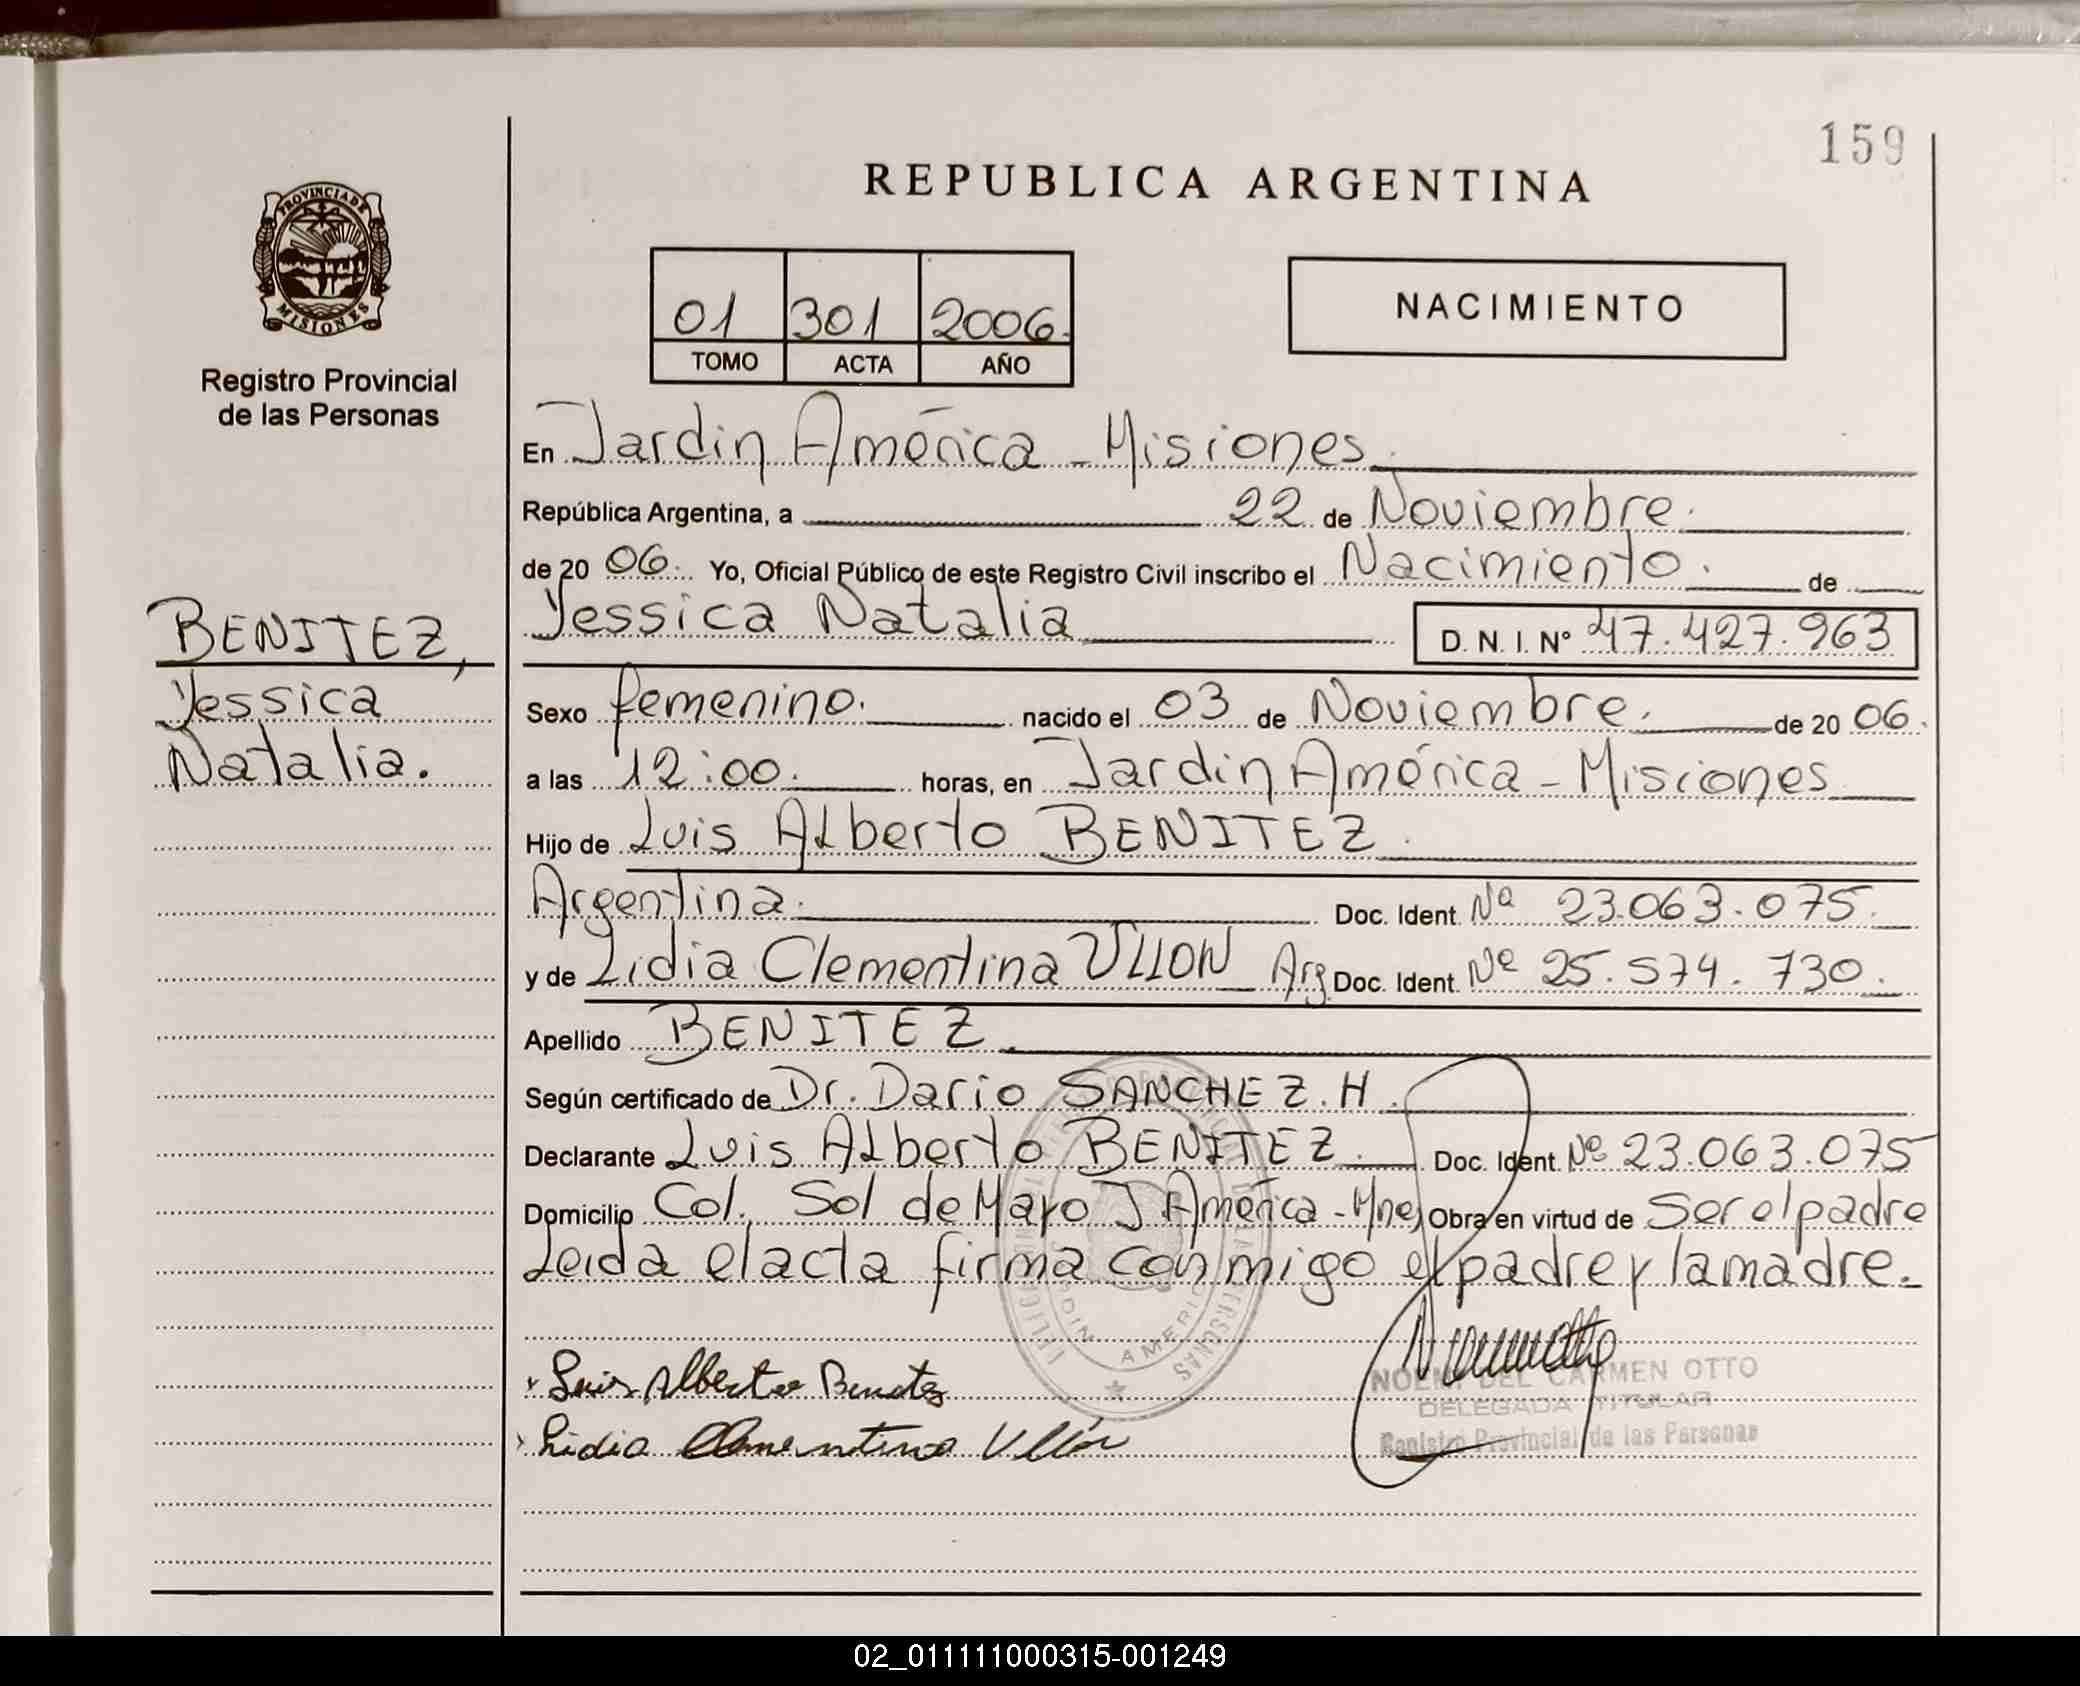 159
REPUBLICA ARGENTINA
PROVINCIA DE
MISIONES
Registro Provincial
de las Personas
01 301 2006.
TOMO ACTA AÑO
NACIMIENTO
En Jardin América - Misiones.
República Argentina, a 22 de Noviembre.
de 20 06. Yo, Oficial Público de este Registro Civil inscribo el Nacimiento. de
Yessica Natalia D. N. I. Nº 47.427.963
BENITEZ,
Yessica
Natalia.
Sexo femenino. nacido el 03 de Noviembre. de 20 06.
a las 12:00. horas, en Jardin América - Misiones
Hijo de Luis Alberto BENITEZ.
Argentina. Doc. Ident. Nº 23.063.075.
y de Lidia Clementina ULLON Arg. Doc. Ident. Nº 25.574.730.
Apellido BENITEZ.
Según certificado de Dr. Dario SANCHEZ. H.
Declarante Luis Alberto BENITEZ. Doc. Ident. Nº 23.063.075
Domicilio Col. Sol de Mayo J. América - Mnes Obra en virtud de Ser el padre
Leida el acta firma conmigo el padre y la madre.
JARDIN AMERICA
Luis Alberto Benitez
Lidia Clementina Ullón
NOEMI DEL CARMEN OTTO
DELEGADA TITULAR
Registro Provincial de las Personas
02_011111000315-001249